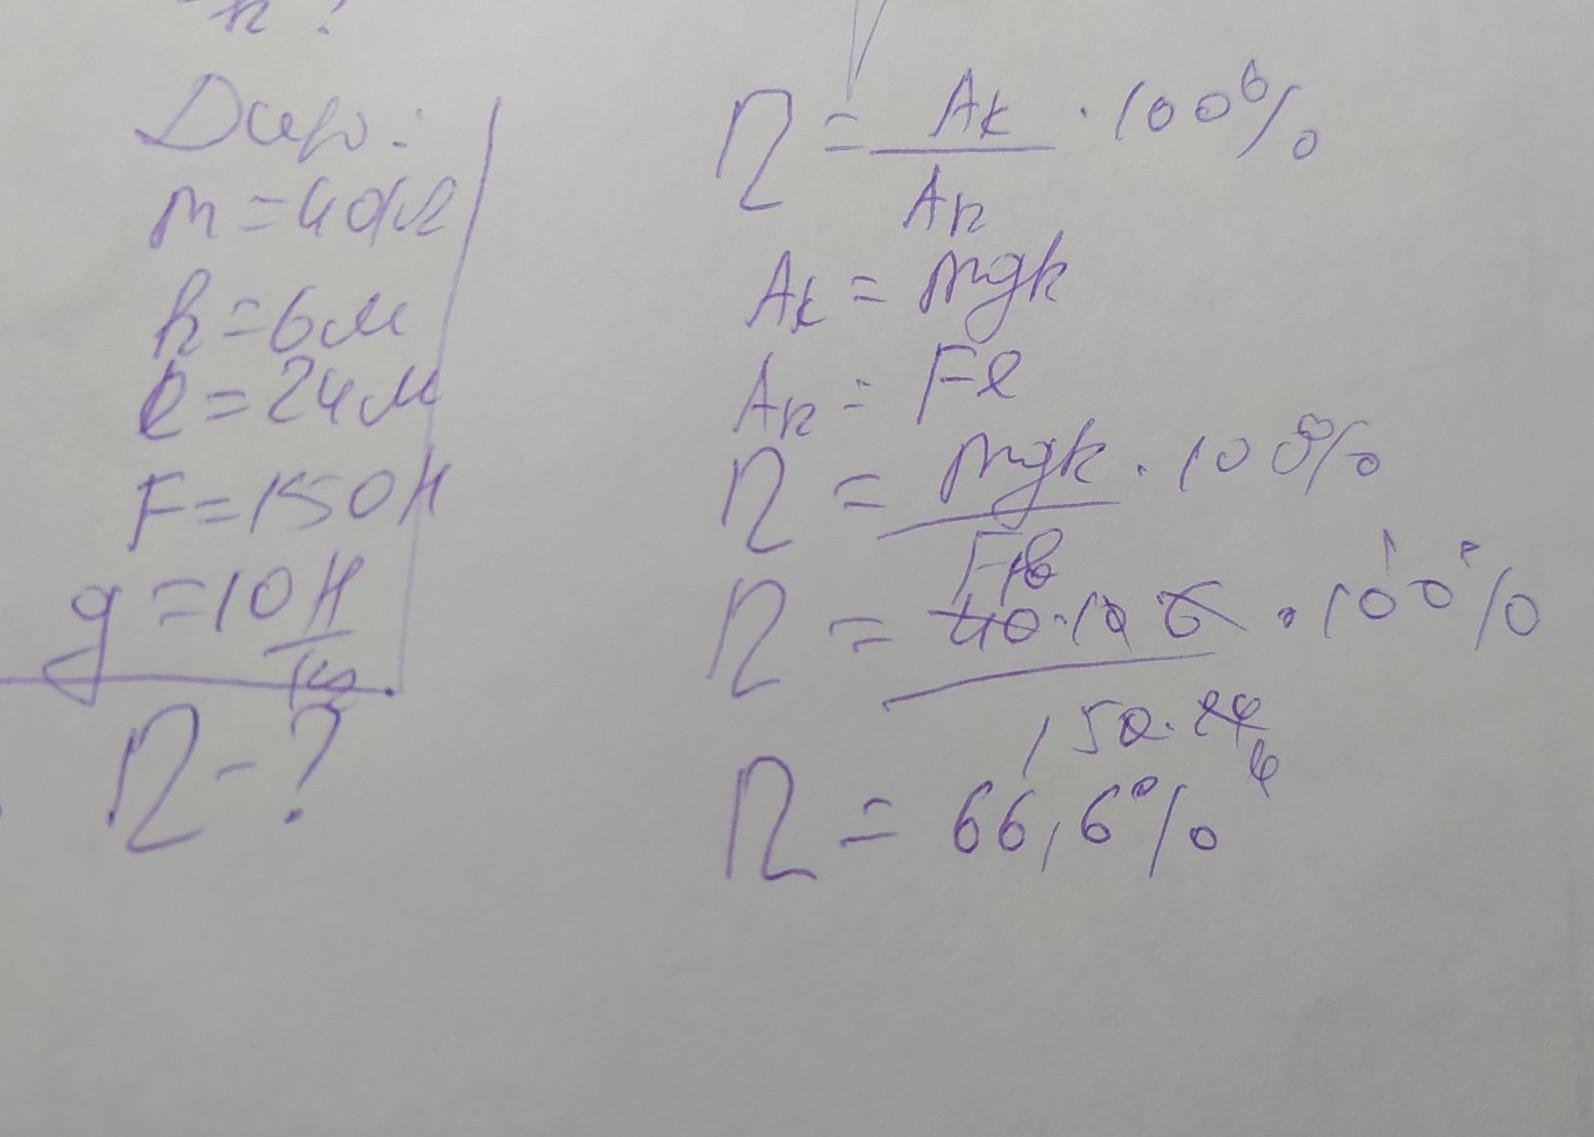 h?
Дано:
m=40кг
h=6м
l=24м
F=150Н
g=10Н/кг
η-?
η = Ak/An · 100%
Ak = mgh
An = Fl
η = mgh/Fl · 100%
η = 40·10 6/150·24 · 100%
4
η = 66,6%